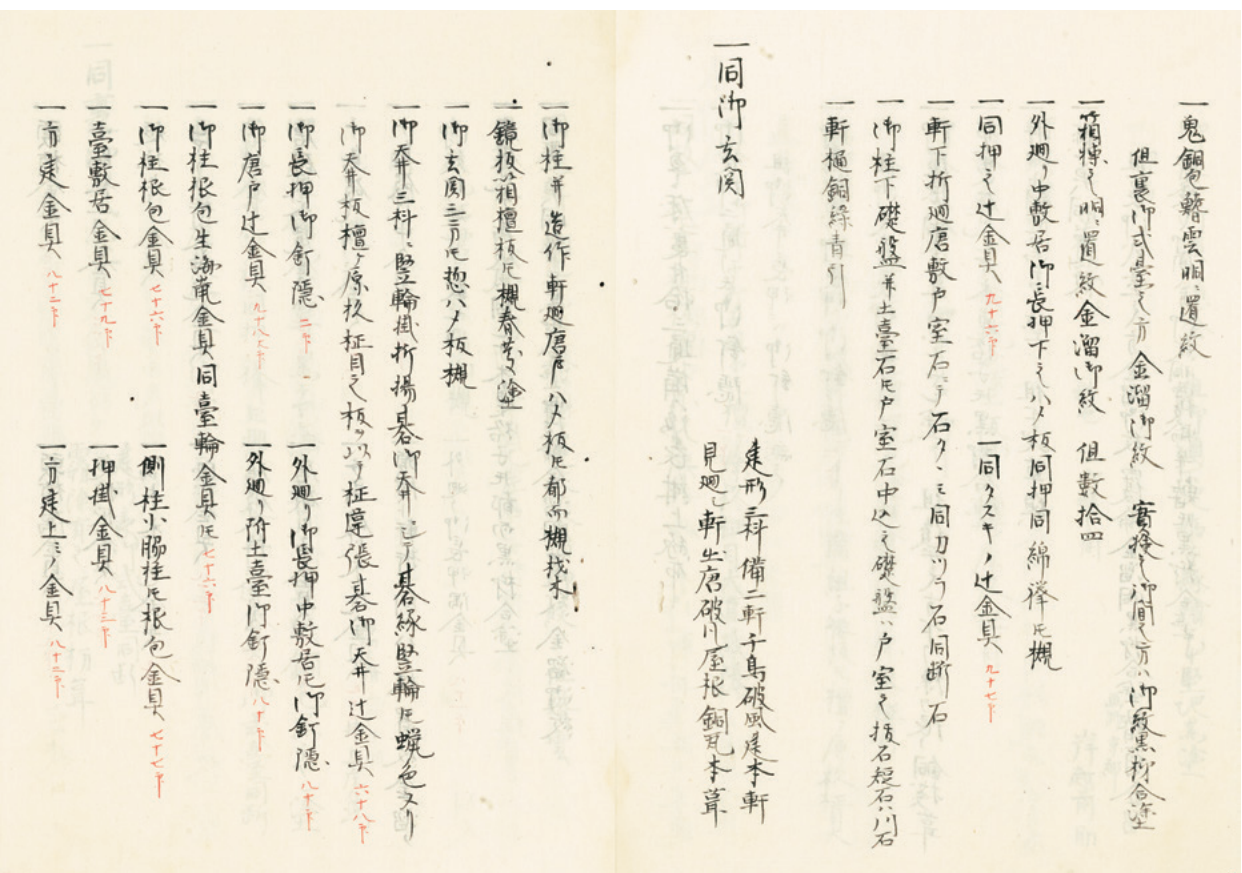 一鬼銅包蟇雲胴ニ置紋
但裏御式臺之方金溜御紋 實検之御間之方ハ御紋黒柳合塗
一箱棟之胴ニ置紋金溜御紋 但数拾四
一外廻り中敷居御長押下之ハメ板同押同綿欅ニ而槻
一同押之辻金具 九十六下
一同タスキノ辻金具 九十七下
一軒下折廻唐敷戸室石ニテ石タヽミ同カツラ石同断石
一御柱下礎盤并土臺石ニ戸室石中込之礎盤ハ戸室之指石短石ハ川石
一軒樋銅緑青引
一同御玄関
建形三科備二軒千鳥破風建本軒
見廻シ軒出唐破風屋根銅瓦本葺
一御柱并造作軒廻唐戸ハメ板ニ都而槻材木
一鏡板箱檀板ニ槻春慶塗
一御玄関三方ニ惣ハメ板槻
一御天井三科ニ竪輪掛折揚碁御天井ニテ碁縁竪輪ニ蝋色ヌリ
一御天井板檀ヶ原杉柾目之板ツイテ柾違張碁御天井辻金具 六十八下
一御長押御釘隠 二下
一外廻り御長押中敷居ニ御釘隠 八十下
一御唐戸辻金具 九十八下
一外廻り附土臺御釘隠 八十下
一御柱根包生海鼠金具同臺輪金具ニ 七十六下
一御柱根包金具 七十六下
一側柱小脇柱ニ根包金具 七十七下
一臺敷居金具 七十九下
一押掛金具 八十三下
一方建金具 八十二下
一方建上ミノ金具 八十二下